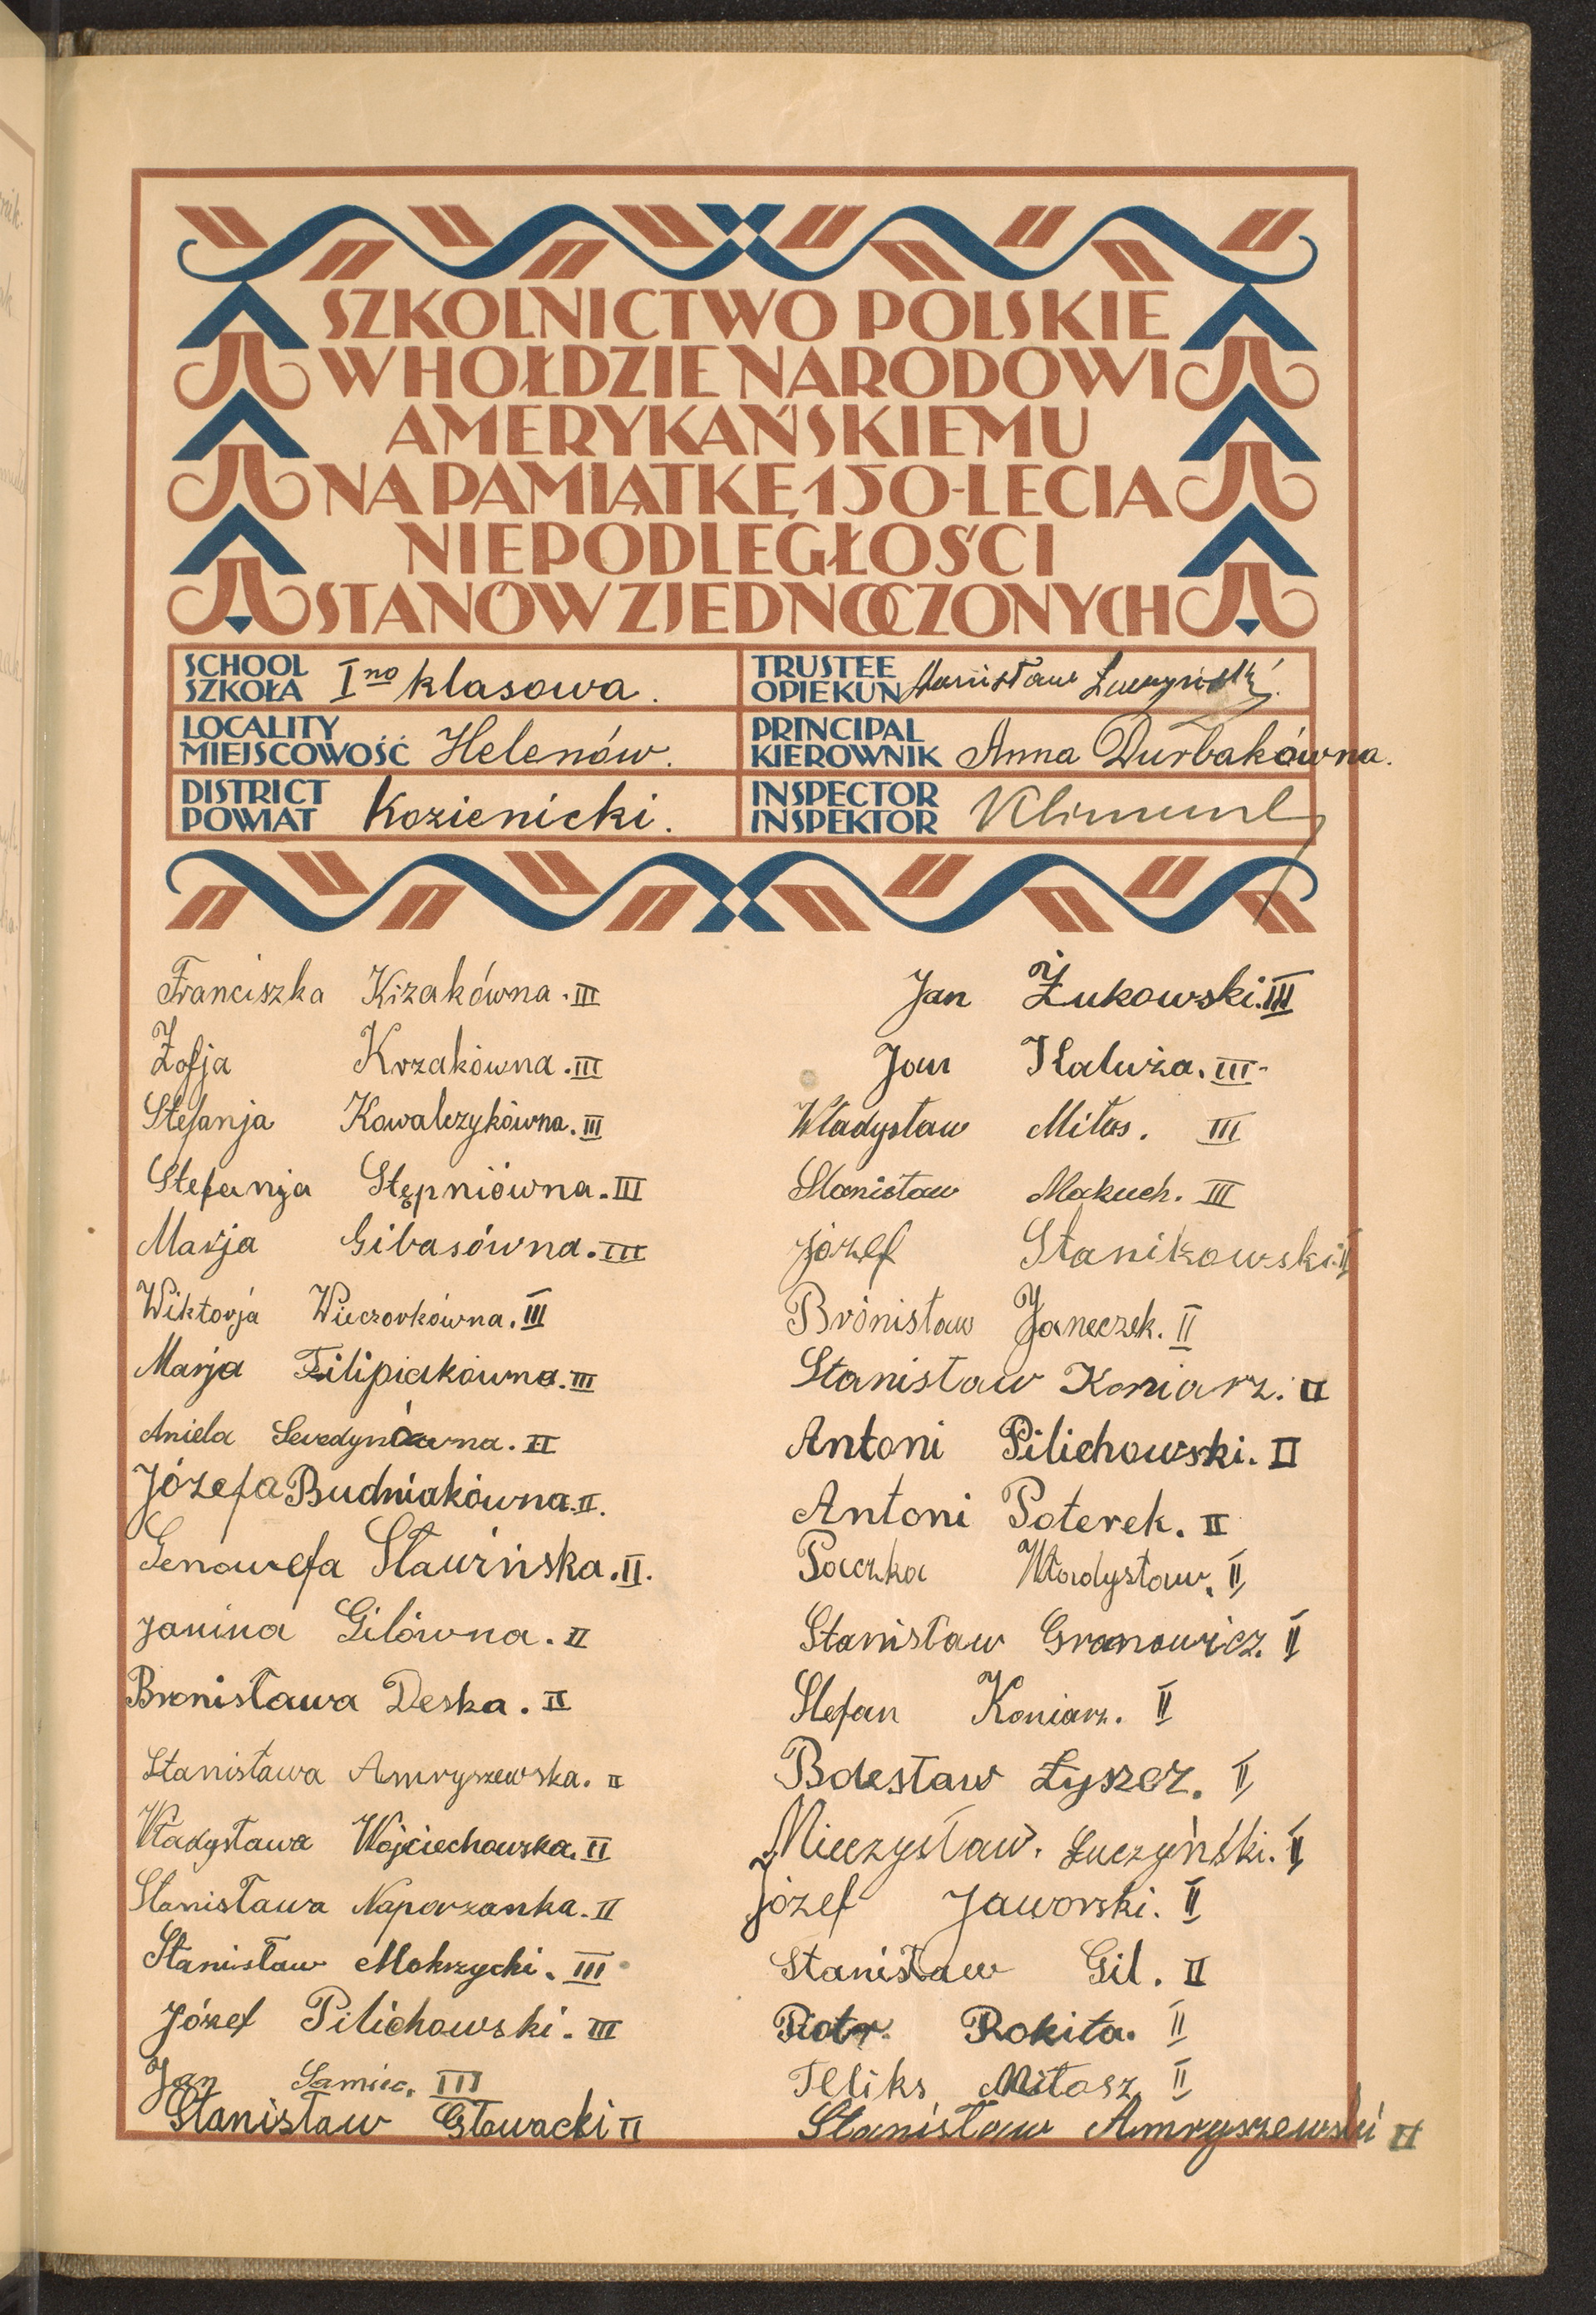 SZKOLNICTWO POLSKIE
W HOŁDZIE NARODOWI
AMERYKAŃSKIEMU
NA PAMIĄTKĘ 150-LECIA
NIEPODLEGŁOŚCI
STANÓW ZJEDNOCZONYCH
SCHOOL
SZKOŁA I no klasowa.
TRUSTEE
OPIEKUN Stanisław
LOCALITY
MIEJSCOWOŚĆ Helenów.
PRINCIPAL
KIEROWNIK Anna Durbakówna.
DISTRICT
POWIAT Kozienicki.
INSPECTOR
INSPEKTOR
Franciszka Kizakówna. III
Zofja Krzakówna. III
Stefanja Kowalczykówna. III
Stefanja Stępniówna. III
Marja Gibasówna. III
Wiktorja Wieczorkówna. III
Marja Filipiakówna. III
Aniela II
Józefa Budniakówna. II.
Genowefa Sławińska. II.
Janina Gilówna. II
Bronisława Deska. II
Stanisława Amryszewska. II
Władysława Wójciechowska. II
Stanisława Naporzanka. II
Stanisław Mokrzycki. III
Józef Pilichowski. III
Jan Samiec. III
Stanisław Głowacki II
Jan Żukowski. III
Jan Hałuża. III
Władysław Miłos. III
Stanisław Makuch. III
Józef Stanikowski. II
Brónisław Janeczek. II
Stanisław Koniarz. II
Antoni Pilichowski. II
Antoni Poterek. II
Paczka Władysław. II
Stanisław Gronowicz. II
Stefan Koniarz. II
Bolesław Łyszcz. II
Mieczysław. Łuczyński. II
Józef Jaworski. II
Stanisław Gil. II
Piotr Rokita. II
Feliks Miłosz. II
Stanisław Amryszewski II